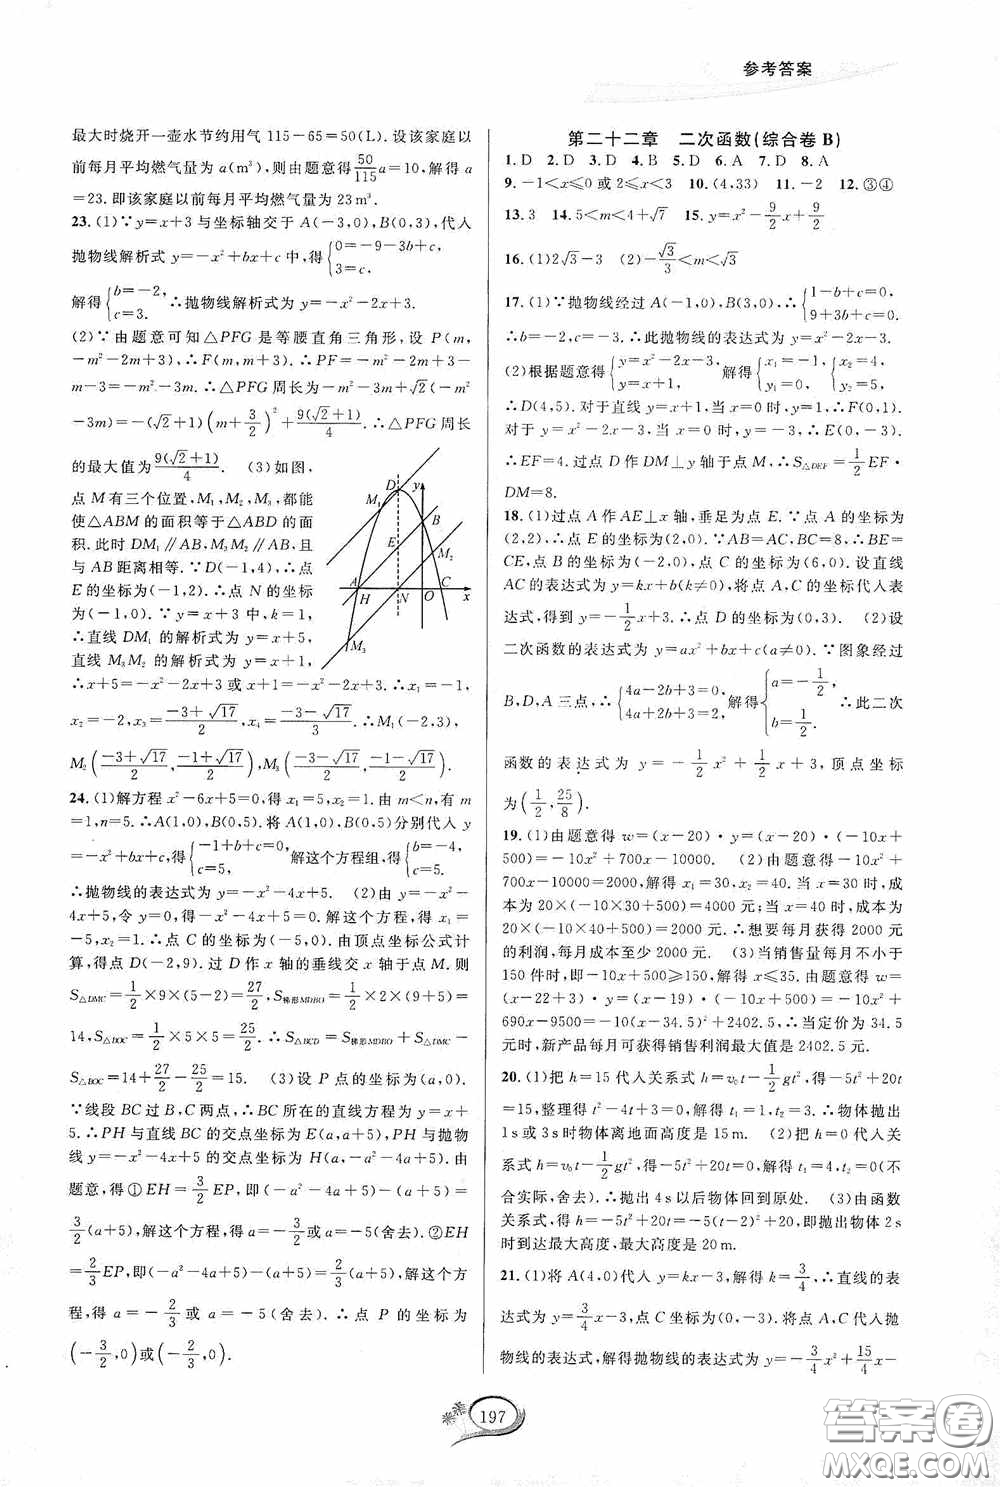 参考答案
最大时烧开一壶水节约用气 115-65=50(L). 设该家庭以
前每月平均燃气量为 a(m³),则由题意得 50/115 a=10,解得 a=
23. 即该家庭以前每月平均燃气量为 23 m³.
23. (1)∵y=x+3 与坐标轴交于 A(-3,0),B(0,3),代人
抛物线解析式 y=-x²+bx+c 中,得{0=-9-3b+c, 3=c.
解得{b=-2, c=3. ∴抛物线解析式为 y=-x²-2x+3.
(2)∵由题意可知△PFG 是等腰直角三角形,设 P(m,
-m²-2m+3),∴F(m,m+3).∴PF=-m²-2m+3-
m-3=-m²-3m.∴△PFG 周长为-m²-3m+√2(-m²
-3m)=-(√2+1)(m+3/2)²+9(√2+1)/4.∴△PFG 周长
的最大值为9(√2+1)/4. (3)如图,
点 M 有三个位置,M₁,M₂,M₃,都能
使△ABM 的面积等于△ABD 的面
积.此时 DM₁∥AB,M₃M₂∥AB,且
与 AB 距离相等.∵D(-1,4),∴点
E 的坐标为(-1,2).∴点 N 的坐标
为(-1,0).∵y=x+3 中,k=1,
∴直线 DM₁ 的解析式为 y=x+5,
直线 M₃M₂ 的解析式为 y=x+1.
∴x+5=-x²-2x+3 或 x+1=-x²-2x+3.∴x₁=-1,
x₂=-2,x₃=(-3+√17)/2,x₄=(-3-√17)/3.∴M₁(-2,3),
M₂((-3+√17)/2,(-1+√17)/2),M₃((-3-√17)/2,(-1-√17)/2).
D y M₁ B E M₂ A C H N O x M₃
24. (1)解方程 x²-6x+5=0,得 x₁=5,x₂=1.由 m<n,有 m
=1,n=5.∴A(1,0),B(0,5).将 A(1,0),B(0,5)分别代人 y
=-x²+bx+c,得{-1+b+c=0, c=5. 解这个方程组,得{b=-4, c=5.
∴抛物线的表达式为 y=-x²-4x+5. (2)由 y=-x²-
4x+5,令 y=0,得-x²-4x+5=0.解这个方程,得 x₁=
-5,x₂=1.∴点 C 的坐标为(-5,0).由顶点坐标公式计
算,得点 D(-2,9).过 D 作 x 轴的垂线交 x 轴于点 M.则
S△DMC=1/2×9×(5-2)=27/2,S梯形MDBO=1/2×2×(9+5)=
14,S△BOC=1/2×5×5=25/2.∴S△BCD=S梯形MDBO+S△DMC-
S△BOC=14+27/2-25/2=15. (3)设 P 点的坐标为(a,0).
∵线段 BC 过 B,C 两点,∴BC 所在的直线方程为 y=x+
5.∴PH 与直线 BC 的交点坐标为 E(a,a+5),PH 与抛物
线 y=-x²-4x+5 的交点坐标为 H(a,-a²-4a+5).由
题意,得①EH=3/2EP,即(-a²-4a+5)-(a+5)=
3/2(a+5),解这个方程,得 a=-3/2或 a=-5(舍去).②EH
=2/3EP,即(-a²-4a+5)-(a+5)=2/3(a+5),解这个方
程,得 a=-2/3 或 a=-5(舍去).∴点 P 的坐标为
(-3/2,0)或(-2/3,0).
第二十二章 二次函数(综合卷 B)
1. D 2. D 3. D 4. B 5. D 6. A 7. D 8. A
9. -1<x≤0 或 2≤x<3 10. (4,33) 11. -2 12. ③④
13. 3 14. 5<m<4+√7 15. y=x²-9/2x+9/2
16. (1)2√3-3 (2)-√3/3<m<√3
17. (1)∵抛物线经过 A(-1,0),B(3,0),∴{1-b+c=0, 9+3b+c=0.
∴b=-2,c=-3.∴此抛物线的表达式为 y=x²-2x-3.
(2)根据题意得{y=x²-2x-3, y=x+1, 解得{x₁=-1, y₁=0, {x₂=4, y₂=5,
∴D(4,5).对于直线 y=x+1,当 x=0 时,y=1,∴F(0,1).
对于 y=x²-2x-3,当 x=0 时,y=-3,∴E(0,-3).
∴EF=4.过点 D 作 DM⊥y 轴于点 M,∴S△DEF=1/2EF·
DM=8.
18. (1)过点 A 作 AE⊥x 轴,垂足为点 E.∵点 A 的坐标为
(2,2),∴点 E 的坐标为(2,0).∵AB=AC,BC=8,∴BE=
CE,∴点 B 的坐标为(-2,0),点 C 的坐标为(6,0).设直线
AC 的表达式为 y=kx+b(k≠0),将点 A,C 的坐标代人表
达式,得到 y=-1/2x+3.∴点 D 的坐标为(0,3). (2)设
二次函数的表达式为 y=ax²+bx+c(a≠0).∵图象经过
B,D,A 三点,∴{4a-2b+3=0, 4a+2b+3=2, 解得{a=-1/2, b=1/2. ∴此二次
函数的表达式为 y=-1/2x²+1/2x+3,顶点坐标
为(1/2,25/8).
19. (1)由题意得 w=(x-20)·y=(x-20)·(-10x+
500)=-10x²+700x-10000. (2)由题意得-10x²+
700x-10000=2000,解得 x₁=30,x₂=40.当 x=30 时,成
本为 20×(-10×30+500)=4000 元;当 x=40 时,成本为
20×(-10×40+500)=2000 元.∴想要每月获得 2000 元
的利润,每月成本至少 2000 元. (3)当销售量每月不小于
150 件时,即-10x+500≥150,解得 x≤35.由题意得 w=
(x-22+3)·y=(x-19)·(-10x+500)=-10x²+
690x-9500=-10(x-34.5)²+2402.5,∴当定价为 34.5
元时,新产品每月可获得销售利润最大值是 2402.5 元.
20. (1)把 h=15 代人关系式 h=v₀t-1/2gt²,得-5t²+20t
=15,整理得 t²-4t+3=0,解得 t₁=1,t₂=3.∴物体抛出
1s 或 3s 时物体离地面高度是 15 m. (2)把 h=0 代人关
系式 h=v₀t-1/2gt²,得-5t²+20t=0,解得 t₁=4,t₂=0(不
合实际,舍去).∴抛出 4s 以后物体回到原处. (3)由函数
关系式,得 h=-5t²+20t=-5(t-2)²+20,即抛出物体 2s
时到达最大高度,最大高度是 20 m.
21. (1)将 A(4,0)代人 y=kx-3,解得 k=3/4,∴直线的表
达式为 y=3/4x-3,点 C 坐标为(0,-3),将点 A,C 代人抛
物线的表达式,解得抛物线的表达式为 y=-3/4x²+15/4x-
197
答案卷
MXQE.COM